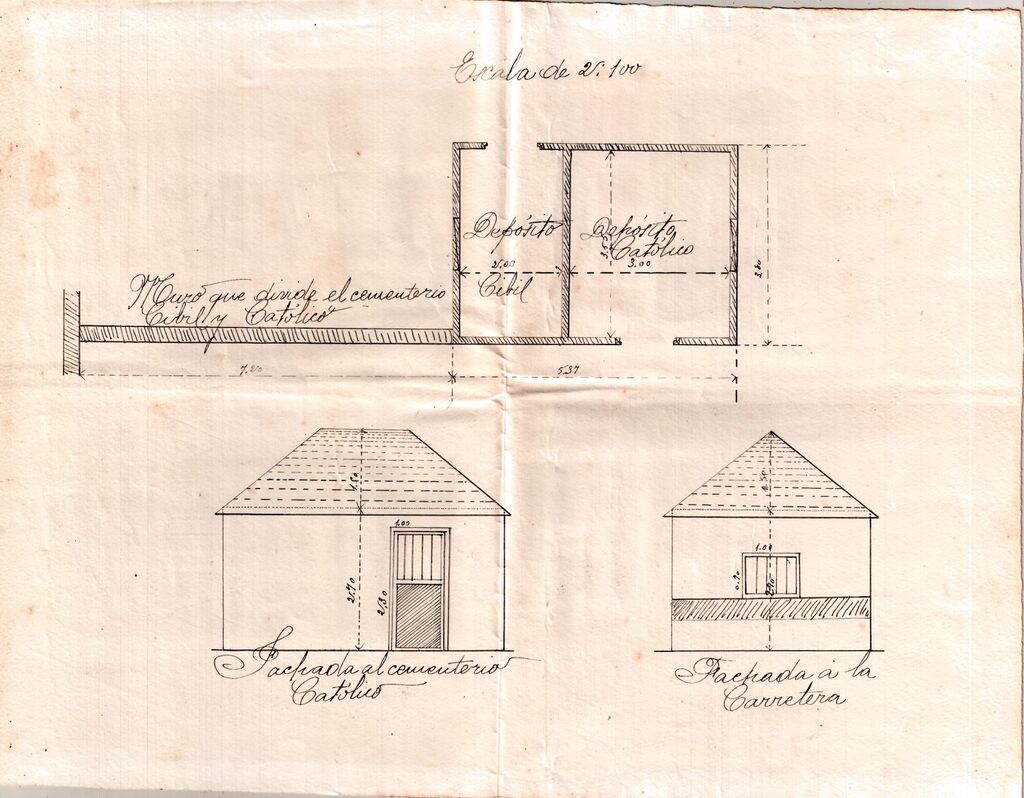 Escala de 2: 100
Depósito
2.00
Civil
Depósito
Católico
3.00
Muro que divide el cementerio
Civil y Católico
7.20
5.37
1.50
1.00
2.70
2.30
Fachada al cementerio
Católico
1.50
1.00
0.70
2.70
Fachada á la
Carretera